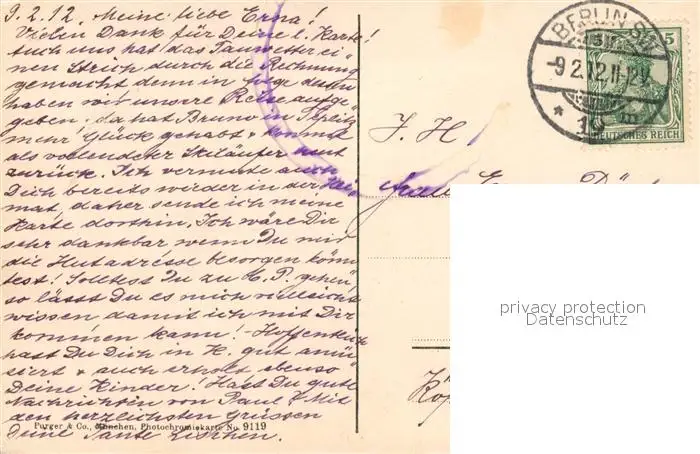 9.2.12. Meine liebe Erna!
Vielen Dank für Deine l. Karte!
Auch uns hat das Tauwetter ei-
nen Strich durch die Rechnung
gemacht denn in folge dessen
haben wir unsere Reise aufge-
geben. da hat Bruno in
mehr Glück gehabt & kommt
als vollendeter Skiläufer heut
zurück. Ich vermute auch
Dich bereits wieder in der Hei-
mat, daher sende ich meine
Karte dorthin. Ich wäre Dir
sehr dankbar wenn Du mir
die Hutadresse besorgen könn-
test! Solltest Du zu gehen,
so lässt Du es mich vielleicht
wissen damit ich mit Dir
kommen kann! - Hoffentlich
hast Du Dich in K. gut amü-
siert & auch erholt ebenso
Deine Kinder! Hast Du gute
Nachrichten von Paul? Mit
den herzlichsten Grüssen
Deine Tante
Purger & Co., München, Photochromiekarte No. 9119
BERLIN SW
-9 2.12. 11-12V
* 19
5
DEUTSCHES REICH
I. H.
Frau
Köp
privacy protection
Datenschutz